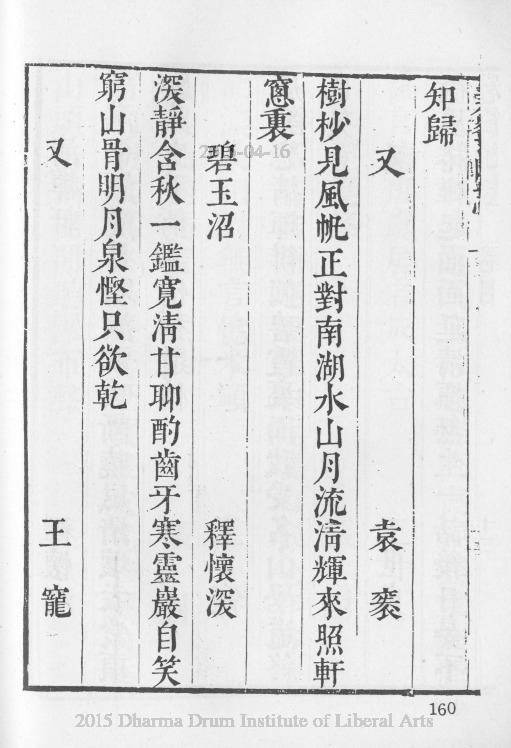 知歸
又 袁袠
樹杪見風帆正對南湖水山月流清輝來照軒
窻裏
碧玉沼 釋懷深
深靜含秋一鑑寬清甘聊酌齒牙寒靈巖自笑
窮山骨明月泉慳只欲乾
又 王寵
160
2015-04-16
2015 Dharma Drum Institute of Liberal Arts